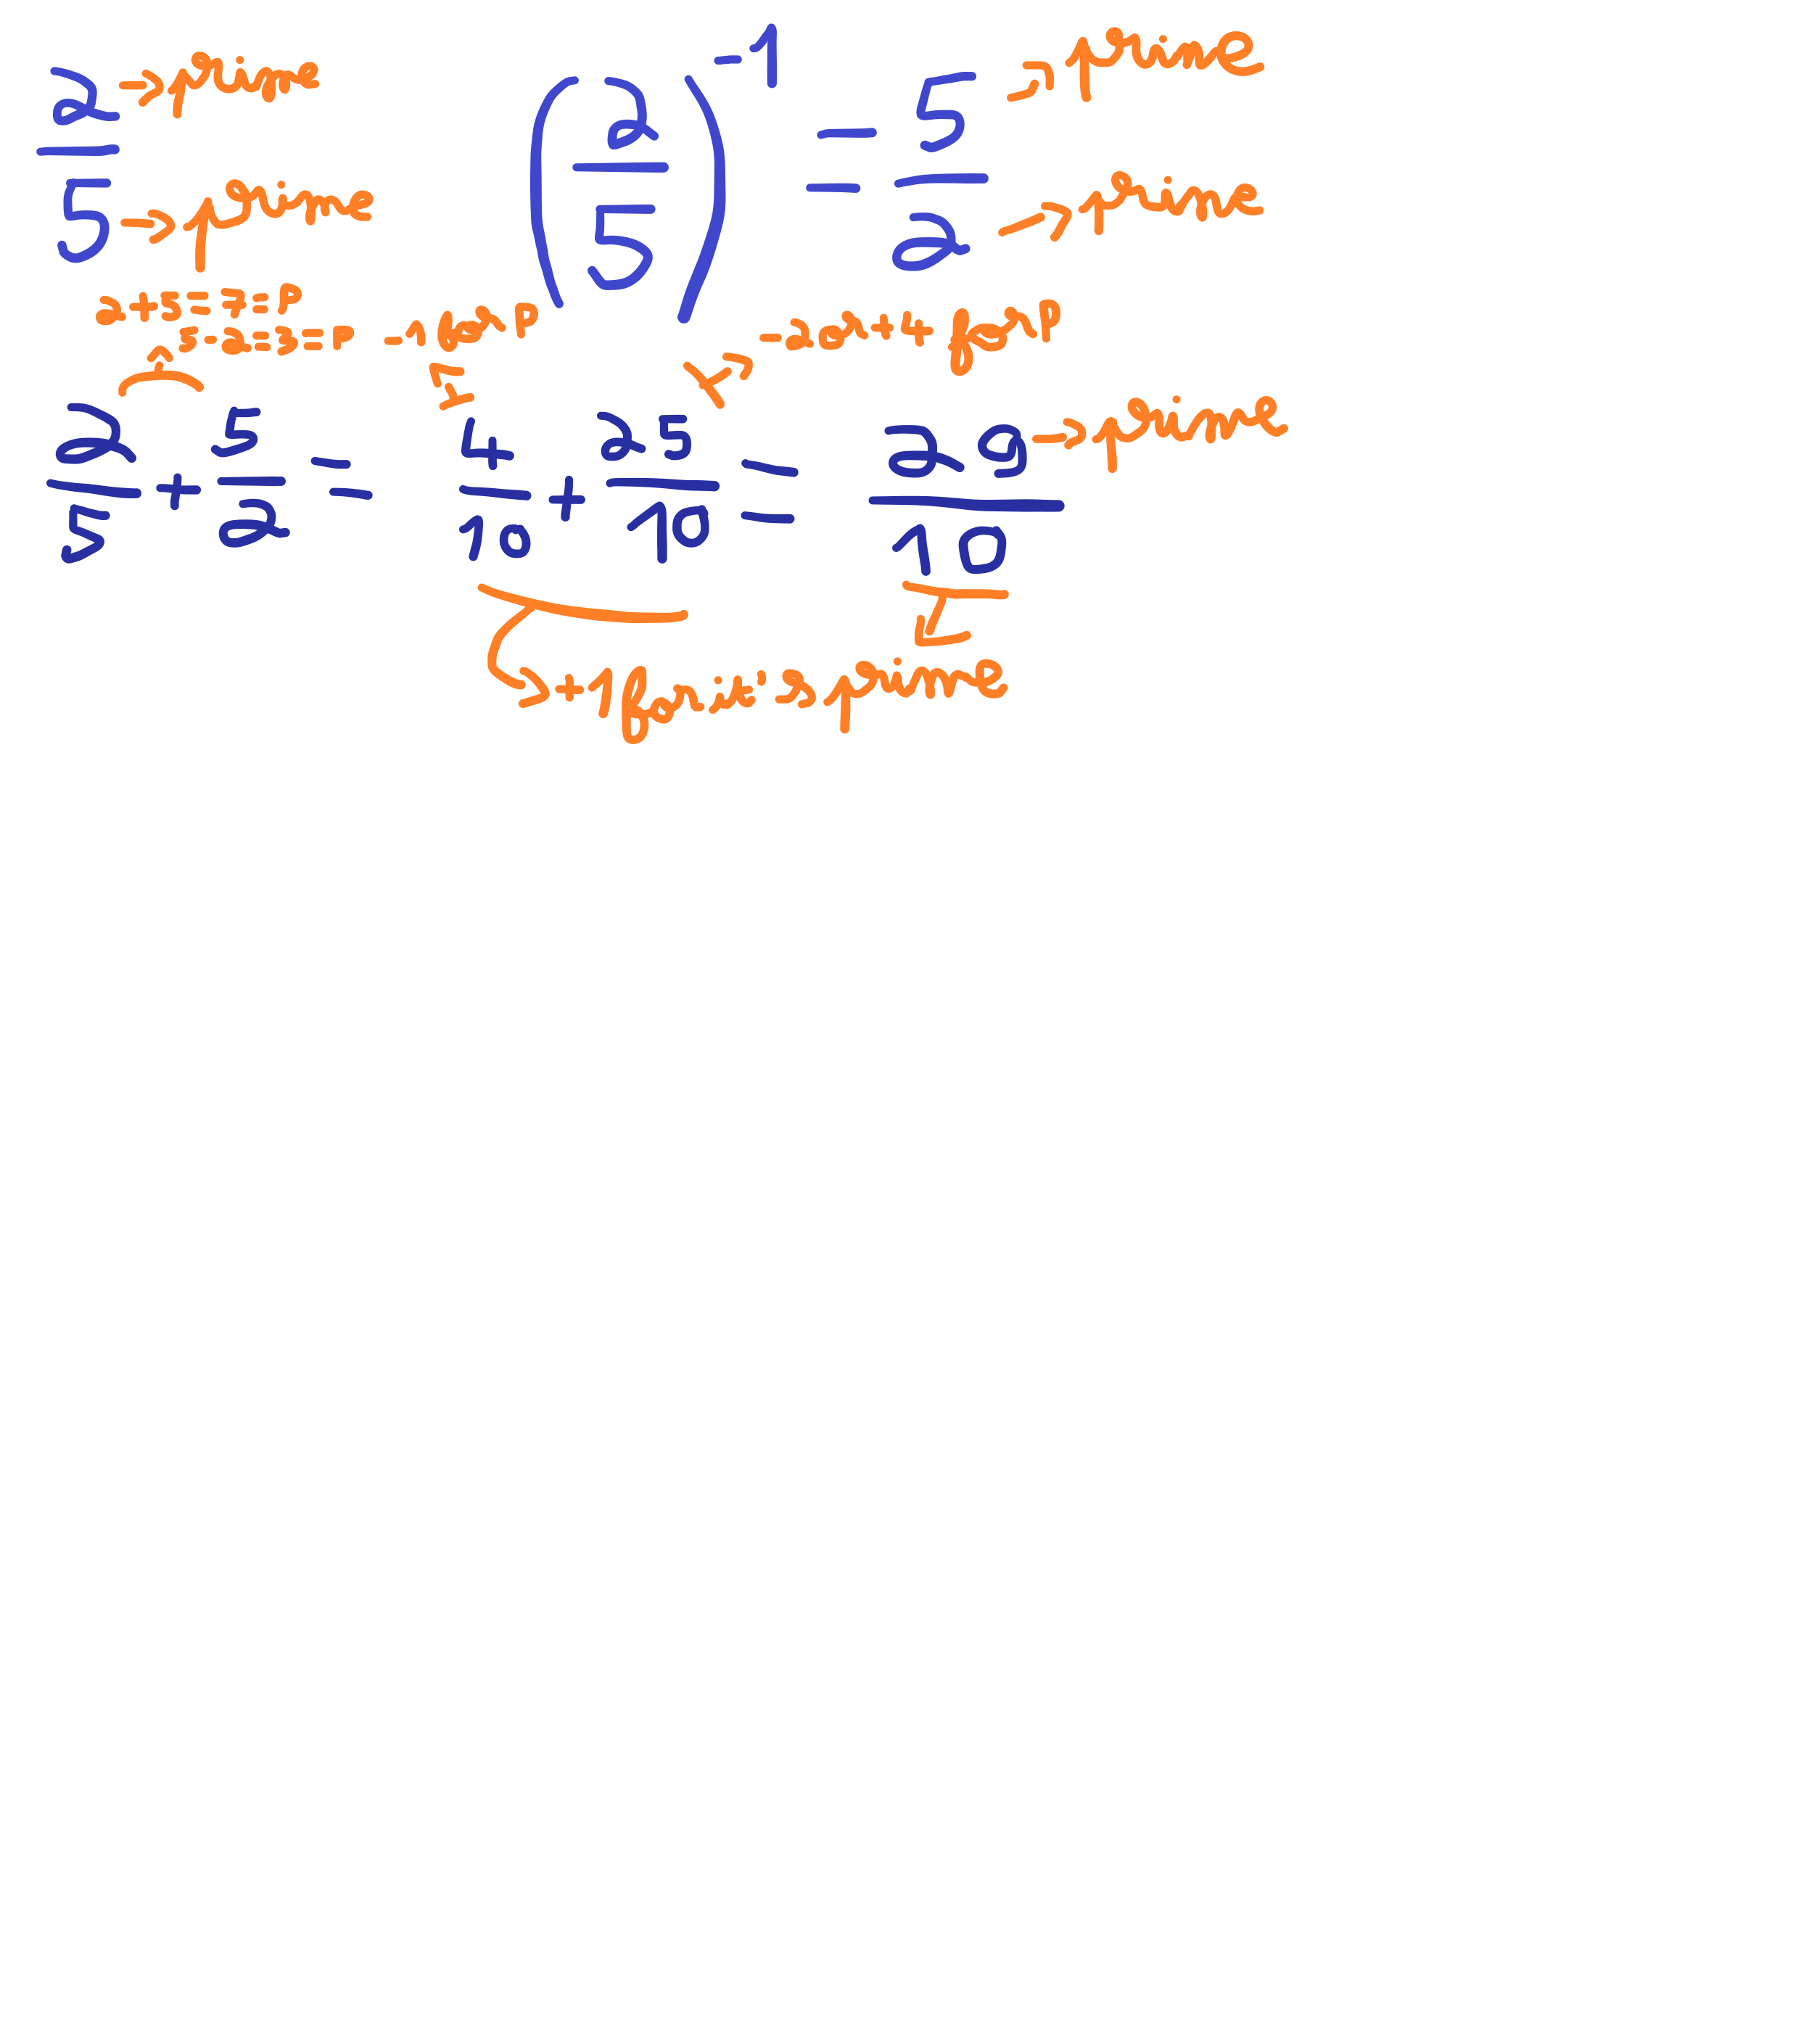 2/5 → prime → prime
(2/5)^-1 = 5/2 → prime → prime
2+5=7=P
5-2=3=P
-1 for P
-2 or +4 for P
2/5 + 5/2 = 4/10 + 25/10 = 29/10 → prime
→ +1 for it's prime